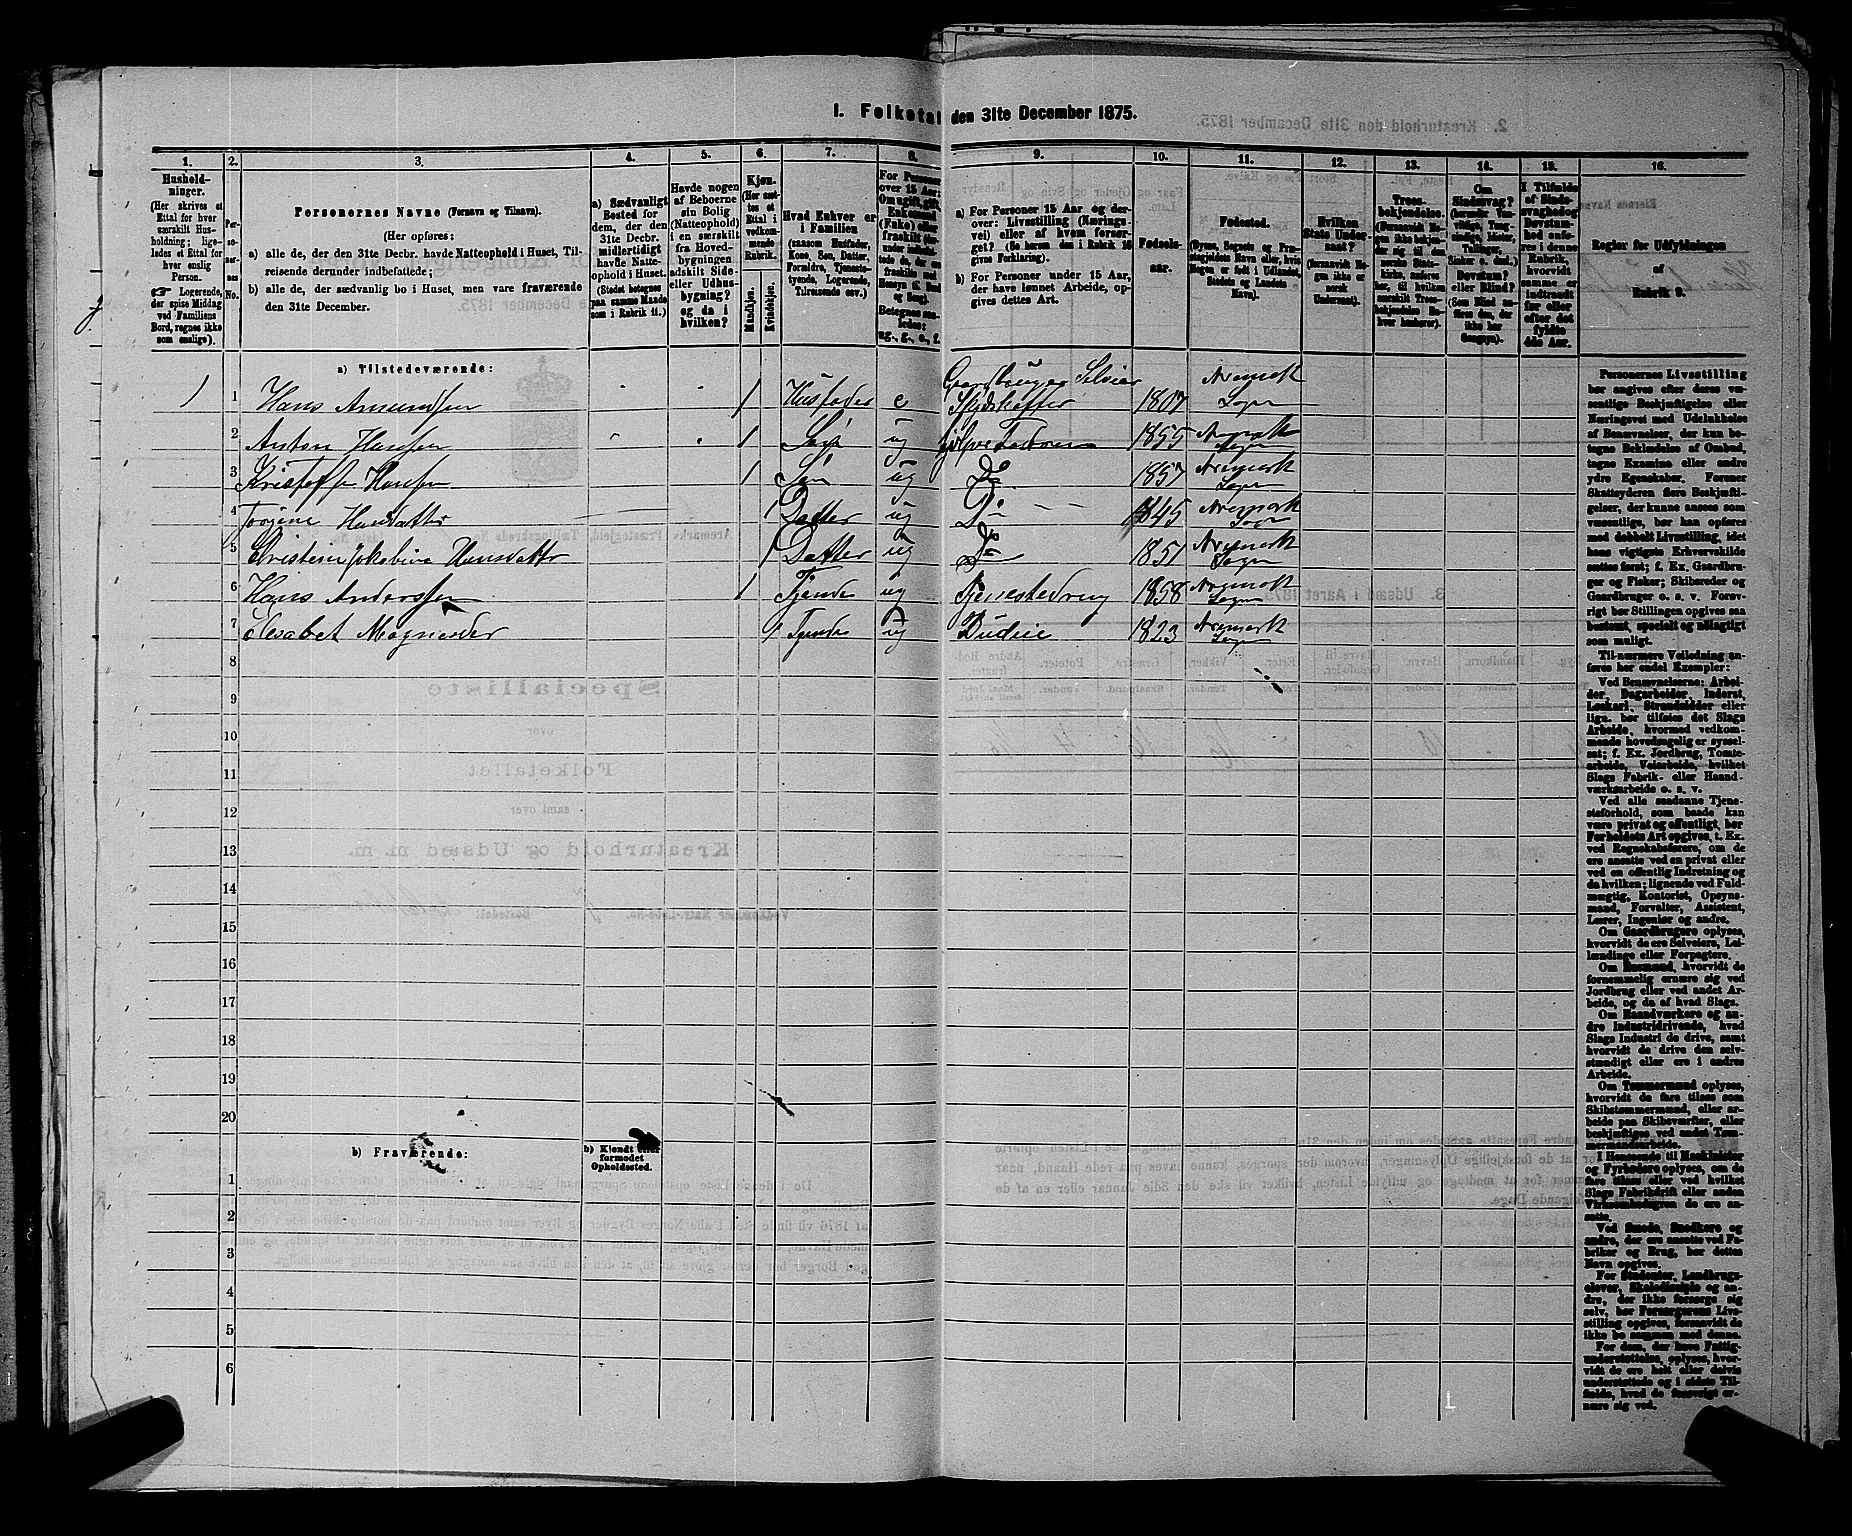 1. Folketal den 31te December 1875.
1. 2. 3. 4. 5. 6. 7. 8. 9. 10. 11. 12. 13. 14. 15. 16.
Hushold-
ninger.
(Her skrives et
Ettal for hver
særskilt Hus-
holdning; lige-
ledes et Ettal for
hver enslig
Person.
☞ Logerende,
der spise Middag
ved Familiens
Bord, regnes ikke
som enslige).
Personernes No.
Personernes Navne (Fornavn og Tilnavn).
(Her opføres:
a) alle de, der den 31te Decbr. havde Natteophold i Huset, Til-
reisende derunder indbefattede;
b) alle de, der sædvanlig bo i Huset, men vare fraværende
den 31te December.
a) Sædvanligt
Bosted for
dem, der den
31te Decbr.
midlertidigt
havde Natte-
ophold i Huset.
(Stedet betegnes
paa samme Maade
som i Rubrik 11.)
Havde nogen
af Beboerne
sin Bolig
(Natteophold)
i en særskilt
fra Hoved-
bygningen
adskilt Side-
eller Udhus-
bygning?
og da i
hvilken?
Kjøn.
(Her sæt-
tes et
Ettal i
vedkom-
mende
Rubrik.
Mandkjøn.
Kvindekjøn.
Hvad Enhver er
i Familien
(saasom Husfader,
Kone, Søn, Datter,
Forældre, Tjeneste-
tyende, Logerende,
Tilreisende osv.)
For Personer
over 15 Aar:
Om ugift, gift,
Enkemand
(Enke) eller
fraskilt
ug., g., e., f.
a) For Personer 15 Aar og der-
over: Livsstilling (Nærings-
vei) eller af hvem forsør-
get? (Se herom den i Rubrik 16
givne Forklaring).
b) For Personer under 15 Aar,
der have lønnet Arbeide, op-
gives dettes Art.
Fødsels-
aar.
Fødested.
(Byens, Sognets og Præ-
stegjeldets Navn eller, hvis
Nogen er født i Udlandet,
Stedets og Landets
Navn).
Hvilken
Stats Under-
saat?
(forsaavidt No-
gen ikke er
norsk
Undersaat).
Troes-
bekjendelse.
(Forsaavidt No-
gen ikke bekjen-
der sig til den
norske Stats-
kirke, anføres
her, til hvilken
særskilt Troes-
bekjendelse En-
hver henhører).
Om
Sindssvag?
Døvstum?
eller Blind?
I Tilfælde
af Sinds-
svaghed og
Døvstum-
hed anfø-
res i denne
Rubrik,
hvorvidt
samme er
indtraadt
før eller
efter det
fyldte
4de Aar.
Regler for Udfyldningen
af
Rubrik 9.
a) Tilstedeværende:
1 1 Hans Amundsen 1 Husfader e Gaardbruger Selveier Skydskafter 1807 Aremark Sogn
2 Anton Hansen 1 Søn ug 1855 Aremark Sogn
3 Kristoffe Hansen 1 Søn ug Do 1857 Aremark Sogn
4 Hansdatter 1 Datter ug Do 1845 Aremark Sogn
5 Hansdattr 1 Datter ug Do 1851 Aremark Sogn
6 Hans Anderssen 1 Tjende ug Tjenestedreng 1858 Aremark Sogn
7 Elisabet 1 Tjende ug Budeie 1823 Aremark Sogn
8
9
10
11
12
13
14
15
16
17
18
19
20
b) Fraværende:
b) Kjendt eller
formodet
Opholdssted.
1
2
3
4
5
6
Personernes Livsstilling
bør angives efter deres væ-
sentlige Beskjæftigelse eller
Næringsvei med Udelukkelse
af Benævnelser, der kun be-
tegne Beklædelse af Ombud,
tagne Examina eller andre
ydre Egenskaber. Forener
Skatteyderen flere Beskjæfti-
gelser, der kunne ansees som
væsentlige, bør han opføres
med dobbelt Livsstilling, idet
hans vigtigste Erhvervskilde
sættes først; f. Ex. Gaardbru-
ger og Fisker; Skibsreder og
Gaardbruger o. s. v. Forøv-
rigt bør Stillingen opgives saa
bestemt, specielt og nøiagtigt
som muligt.
Til nærmere Veiledning an-
føres her endel Exempler:
Ved Benævnelserne: Arbei-
der, Dagarbeider, Inderst,
Løskarl, Strandsidder eller
lign. bør tilføies det Slags
Arbeide, hvormed vedkom-
mende hovedsagelig er syssel-
sat; f. Ex. Jordbrug, Tomte-
arbeide, Veiarbeide, hvilket
Slags Fabrik- eller Haand-
værksarbeide o. s. v.
Ved alle saadanne Tjene-
steforhold, som baade kan
være privat og offentligt, bør
Forholdets Art opgives, t. Ex.
ved Regnskabsførere, om de
ere ansatte ved en privat eller
ved en offentlig Indretning og
da hvilken; lignende ved Fuld-
mægtig, Kontorist, Opsyns-
mand, Forvalter, Assistent,
Lærer, Ingeniør og andre.
Om Gaardbrugere oplyses,
hvorvidt de ere Selveiere, Lei-
lændinge eller Forpagtere.
Om Husmænd, hvorvidt de
fornemmelig ernære sig ved
Jordbrug eller ved andet Ar-
beide, og da af hvad Slags.
Om Haandværkere og an-
dre Industridrivende, hvad
Slags Industri de drive, samt
hvorvidt de drive den selv-
stændigt eller ere i andres
Arbeide.
Om Tømmermænd oplyses,
hvorvidt de fare tilsøs som
Skibstømmermænd, eller ar-
beide paa Skibsværfter, eller
beskjæftiges ved andet Tøm-
mermandsarbeide.
I Henseende til Maskinister
og Fyrbødere oplyses, om de
fare tilsøs eller ved hvilket
Slags Fabrikdrift eller anden
Virksomhedsgren de ere an-
satte.
Ved Smede, Snedkere og
andre, der ere ansatte ved Fa-
briker og Brug, bør dettes
Navn opgives.
For Studenter, Landbrugs-
elever, Skoledisciple og an-
dre, der ikke forsørge sig
selv, bør Forsørgerens Livs-
stilling opgives, forsaavidt de
ikke bo sammen med denne.
For dem, der have Fattig-
understøttelse, oplyses, hvor-
vidt de ere helt eller delvis
understøttede og i sidste Til-
fælde, hvad de forøvrigt er-
nære sig ved.